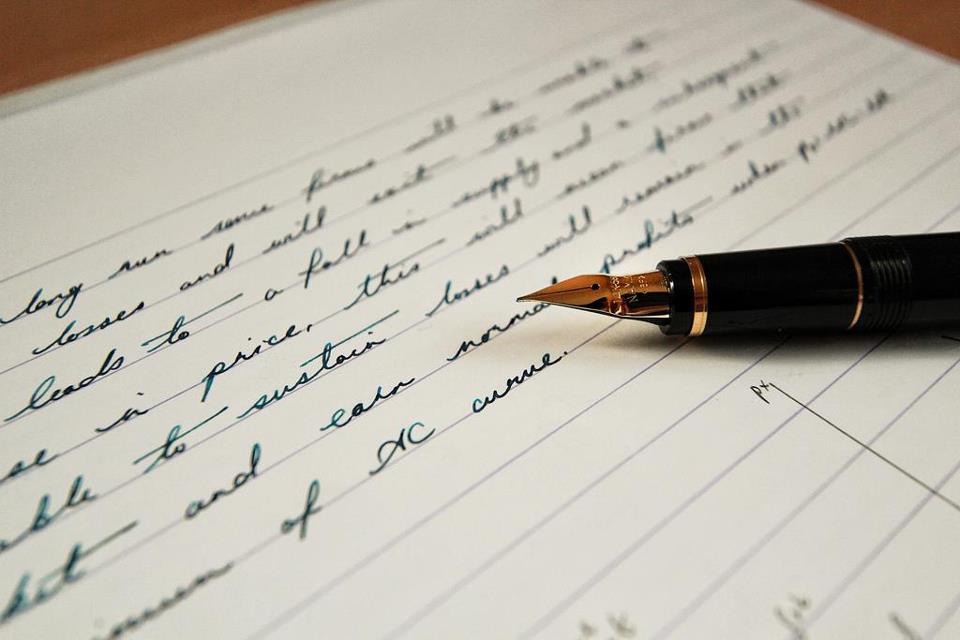 long run some firms will be unable to
losses and will exit the market
leads to a fall in supply and a subsequent
se in price, this will mean firms that
able to sustain losses will remain in the
ket and earn normal profits when
of AC curve.